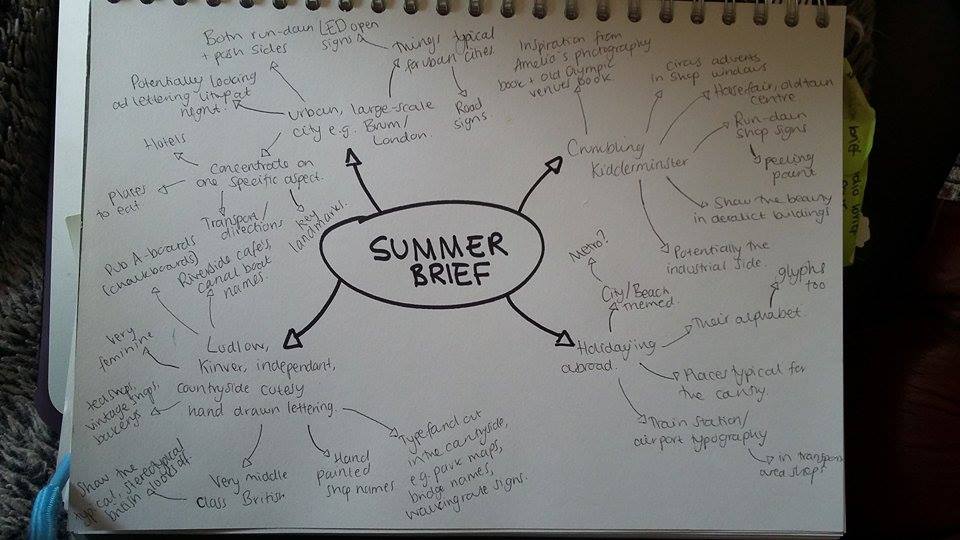 SUMMER
BRIEF
Urban, large-scale
city e.g. Brum/
London.
Both run-down
+ posh sides
Things typical
for urban cities.
LED open
signs
Road
signs.
Potentially looking
at lettering lit up at
night!
Concentrate on
one specific aspect.
Hotels
places
to eat.
Transport/
directions
key
landmark!
Crumbling
Kidderminster
Inspiration from
Amelio's photography
book + old Olympic
venues book.
Circus adverts
in shop windows
Horsefair, old town
centre
Run-down
shop signs
peeling
paint
Show the beauty
in derelict buildings
Potentially the
industrial side.
Holidaying
abroad.
City/Beach
themed.
Metro?
Their alphabet.
glyphs
too
Places typical for
the country.
Train station/
airport typography
in transport
area shops
Ludlow,
Kinver, independant,
countryside cutesy
hand drawn lettering.
Pub A-boards
(chalkboards)
Riverside cafe's,
canal boat
names.
Very
feminine
teashops,
vintage shops,
bakerys
Very middle
class British
Show the
typical, stereotypical
british
Hand
painted
shop names
Type found out
in the countryside,
e.g. park maps,
bridge names,
walking route signs.
brief